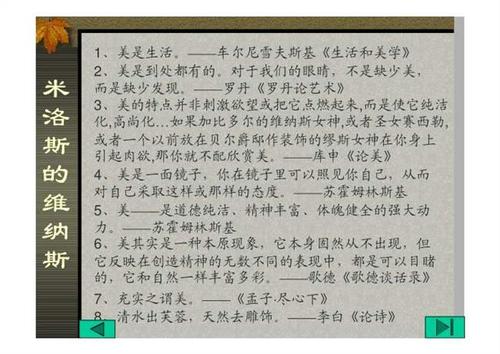 米洛斯的维纳斯
1、美是生活。——车尔尼雪夫斯基《生活和美学》
2、美是到处都有的。对于我们的眼睛，不是缺少美，
而是缺少发现。——罗丹《罗丹论艺术》
3、美的特点并非刺激欲望或把它点燃起来,而是使它纯洁
化,高尚化…如果加比多尔的维纳斯女神,或者圣女赛西勒,
或者一个以前放在贝尔爵邸作装饰的缪斯女神在你身上
引起肉欲,那你就不配欣赏美。——库申《论美》
4、美是一面镜子，你在镜子里可以照见你自己，从而
对自己采取这样或那样的态度。——苏霍姆林斯基
5、美——是道德纯洁、精神丰富、体魄健全的强大动
力。——苏霍姆林斯基
6、美其实是一种本原现象，它本身固然从不出现，但
它反映在创造精神的无数不同的表现中，都是可以目睹
的，它和自然一样丰富多彩。——歌德《歌德谈话录》
7、充实之谓美。——《孟子·尽心下》
8、清水出芙蓉，天然去雕饰。——李白《论诗》